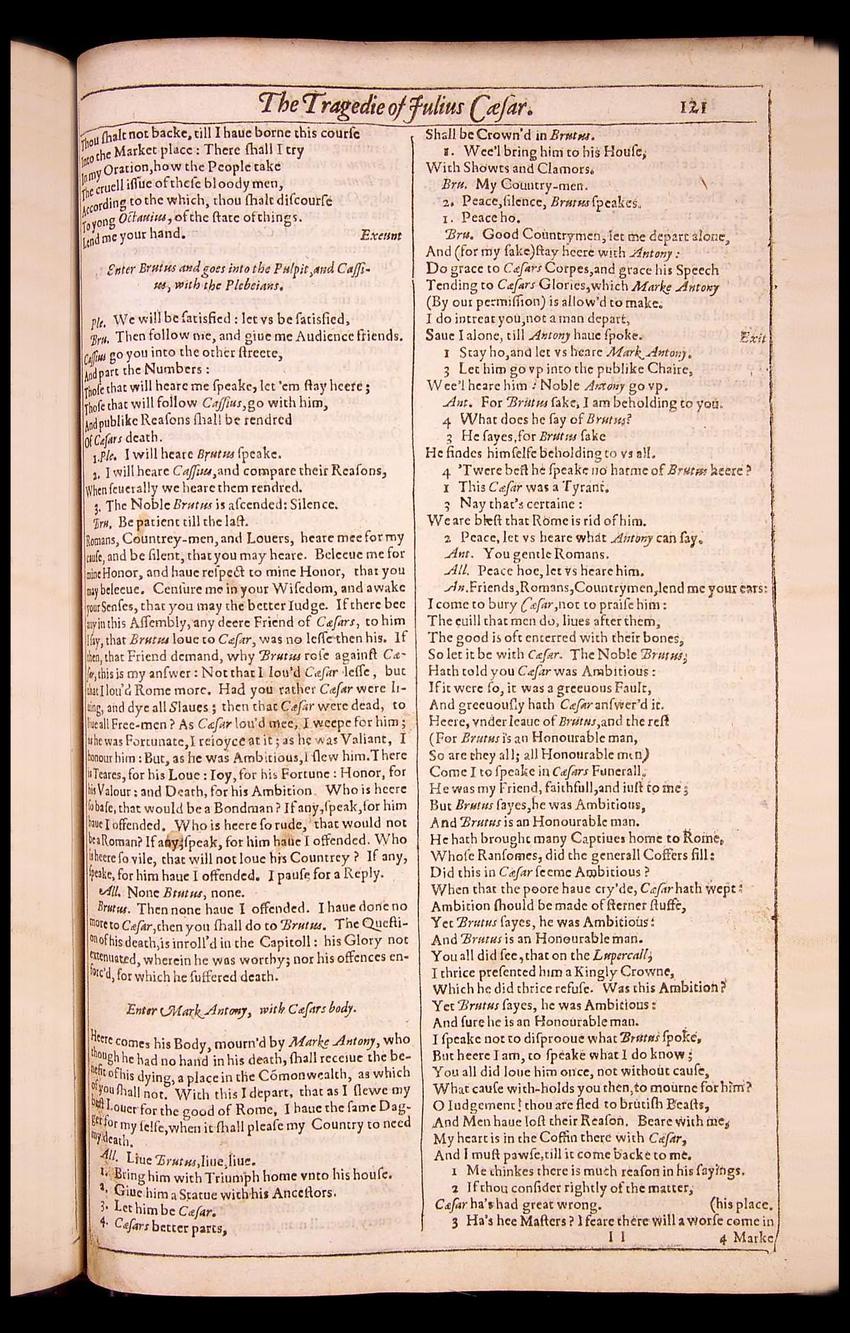 The Tragedie of Julius Cæſar. 121
Thou ſhalt not backe, till I haue borne this courſe
Into the Market place : There ſhall I try
In my Oration, how the People take
The cruell iſſue of theſe bloody men,
According to the which, thou ſhalt diſcourſe
To yong Octauius, of the ſtate of things.
Lend me your hand. Exeunt
Enter Brutus and goes into the Pulpit, and Caſſi-
us, with the Plebeians.
Ple. We will be ſatisfied : let vs be ſatisfied,
Bru. Then follow me, and giue me Audience friends.
Caſſius go you into the other ſtreete,
And part the Numbers :
Thoſe that will heare me ſpeake, let 'em ſtay heere ;
Thoſe that will follow Caſſius, go with him,
And publike Reaſons ſhall be rendred
Of Cæſars death.
1.Ple. I will heare Brutus ſpeake.
2. I will heare Caſſius, and compare their Reaſons,
When ſeuerally we heare them rendred.
3. The Noble Brutus is aſcended: Silence.
Bru. Be patient till the laſt.
Romans, Countrey-men, and Louers, heare mee for my
cauſe, and be ſilent, that you may heare. Beleeue me for
mine Honor, and haue reſpect to mine Honor, that you
may beleeue. Cenſure me in your Wiſedom, and awake
your Senſes, that you may the better Iudge. If there bee
any in this Aſſembly, any deere Friend of Cæſars, to him
I ſay, that Brutus loue to Cæſar, was no leſſe then his. If
then, that Friend demand, why Brutus roſe againſt Cæ-
ſar, this is my anſwer : Not that I lou'd Cæſar leſſe, but
that I lou'd Rome more. Had you rather Cæſar were li-
uing, and dye all Slaues ; then that Cæſar were dead, to
liue all Free-men ? As Cæſar lou'd mee, I weepe for him ;
as he was Fortunate, I reioyce at it ; as he was Valiant, I
honour him : But, as he was Ambitious, I ſlew him. There
is Teares, for his Loue : Ioy, for his Fortune : Honor, for
his Valour : and Death, for his Ambition. Who is heere
ſo baſe, that would be a Bondman ? If any, ſpeak, for him
haue I offended. Who is heere ſo rude, that would not
be a Roman? If any, ſpeak, for him haue I offended. Who
is heere ſo vile, that will not loue his Countrey ? If any,
ſpeake, for him haue I offended. I pauſe for a Reply.
All. None Btutus, none.
Brutus. Then none haue I offended. I haue done no
more to Cæſar, then you ſhall do to Brutus. The Queſti-
on of his death, is inroll'd in the Capitoll : his Glory not
extenuated, wherein he was worthy; nor his offences en-
forc'd, for which he ſuffered death.
Enter Mark Antony, with Cæſars body.
Heere comes his Body, mourn'd by Marke Antony, who
though he had no hand in his death, ſhall receiue the be-
nefit of his dying, a place in the Cōmonwealth, as which
of you ſhall not. With this I depart, that as I ſlewe my
beſt Louer for the good of Rome, I haue the ſame Dag-
ger for my ſelfe, when it ſhall pleaſe my Country to need
my death.
All. Liue Brutus, liue, liue.
1. Bring him with Triumph home vnto his houſe.
2. Giue him a Statue with his Anceſtors.
3. Let him be Cæſar.
4. Cæſars better parts,
Shall be Crown'd in Brutus.
1. Wee'l bring him to his Houſe,
With Showts and Clamors.
Bru. My Country-men.
2. Peace, ſilence, Brutus ſpeakes.
1. Peace ho.
Bru. Good Countrymen, let me depart alone,
And (for my ſake) ſtay heere with Antony :
Do grace to Cæſars Corpes, and grace his Speech
Tending to Cæſars Glories, which Marke Antony
(By our permiſſion) is allow'd to make.
I do intreat you, not a man depart,
Saue I alone, till Antony haue ſpoke. Exit
1 Stay ho, and let vs heare Mark Antony.
3 Let him go vp into the publike Chaire,
Wee'l heare him : Noble Antony go vp.
Ant. For Brutus ſake, I am beholding to you.
4 What does he ſay of Brutus?
3 He ſayes, for Brutus ſake
He findes himſelfe beholding to vs all.
4 'Twere beſt he ſpeake no harme of Brutus heere ?
1 This Cæſar was a Tyrant.
3 Nay that's certaine :
We are bleſt that Rome is rid of him.
2 Peace, let vs heare what Antony can ſay.
Ant. You gentle Romans.
All. Peace hoe, let vs heare him.
An. Friends, Romans, Countrymen, lend me your ears:
I come to bury Cæſar, not to praiſe him :
The euill that men do, liues after them,
The good is oft enterred with their bones,
So let it be with Cæſar. The Noble Brutus,
Hath told you Cæſar was Ambitious :
If it were ſo, it was a greeuous Fault,
And greeuouſly hath Cæſar anſwer'd it.
Heere, vnder leaue of Brutus, and the reſt
(For Brutus is an Honourable man,
So are they all; all Honourable men)
Come I to ſpeake in Cæſars Funerall.
He was my Friend, faithfull, and iuſt to me ;
But Brutus ſayes, he was Ambitious,
And Brutus is an Honourable man.
He hath brought many Captiues home to Rome,
Whoſe Ranſomes, did the generall Coffers fill :
Did this in Cæſar ſeeme Ambitious ?
When that the poore haue cry'de, Cæſar hath wept :
Ambition ſhould be made of ſterner ſtuffe,
Yet Brutus ſayes, he was Ambitious :
And Brutus is an Honourable man.
You all did ſee, that on the Lupercall,
I thrice preſented him a Kingly Crowne,
Which he did thrice refuſe. Was this Ambition ?
Yet Brutus ſayes, he was Ambitious :
And ſure he is an Honourable man.
I ſpeake not to diſprooue what Brutus ſpoke,
But heere I am, to ſpeake what I do know ;
You all did loue him once, not without cauſe,
What cauſe with-holds you then, to mourne for him?
O Iudgement ! thou are fled to brutiſh Beaſts,
And Men haue loſt their Reaſon. Beare with me,
My heart is in the Coffin there with Cæſar,
And I muſt pawſe, till it come backe to me.
1 Me thinkes there is much reaſon in his ſayings.
2 If thou conſider rightly of the matter,
Cæſar ha's had great wrong. (his place.
3 Ha's hee Maſters ? I feare there will a worſe come in
I I 4 Marke